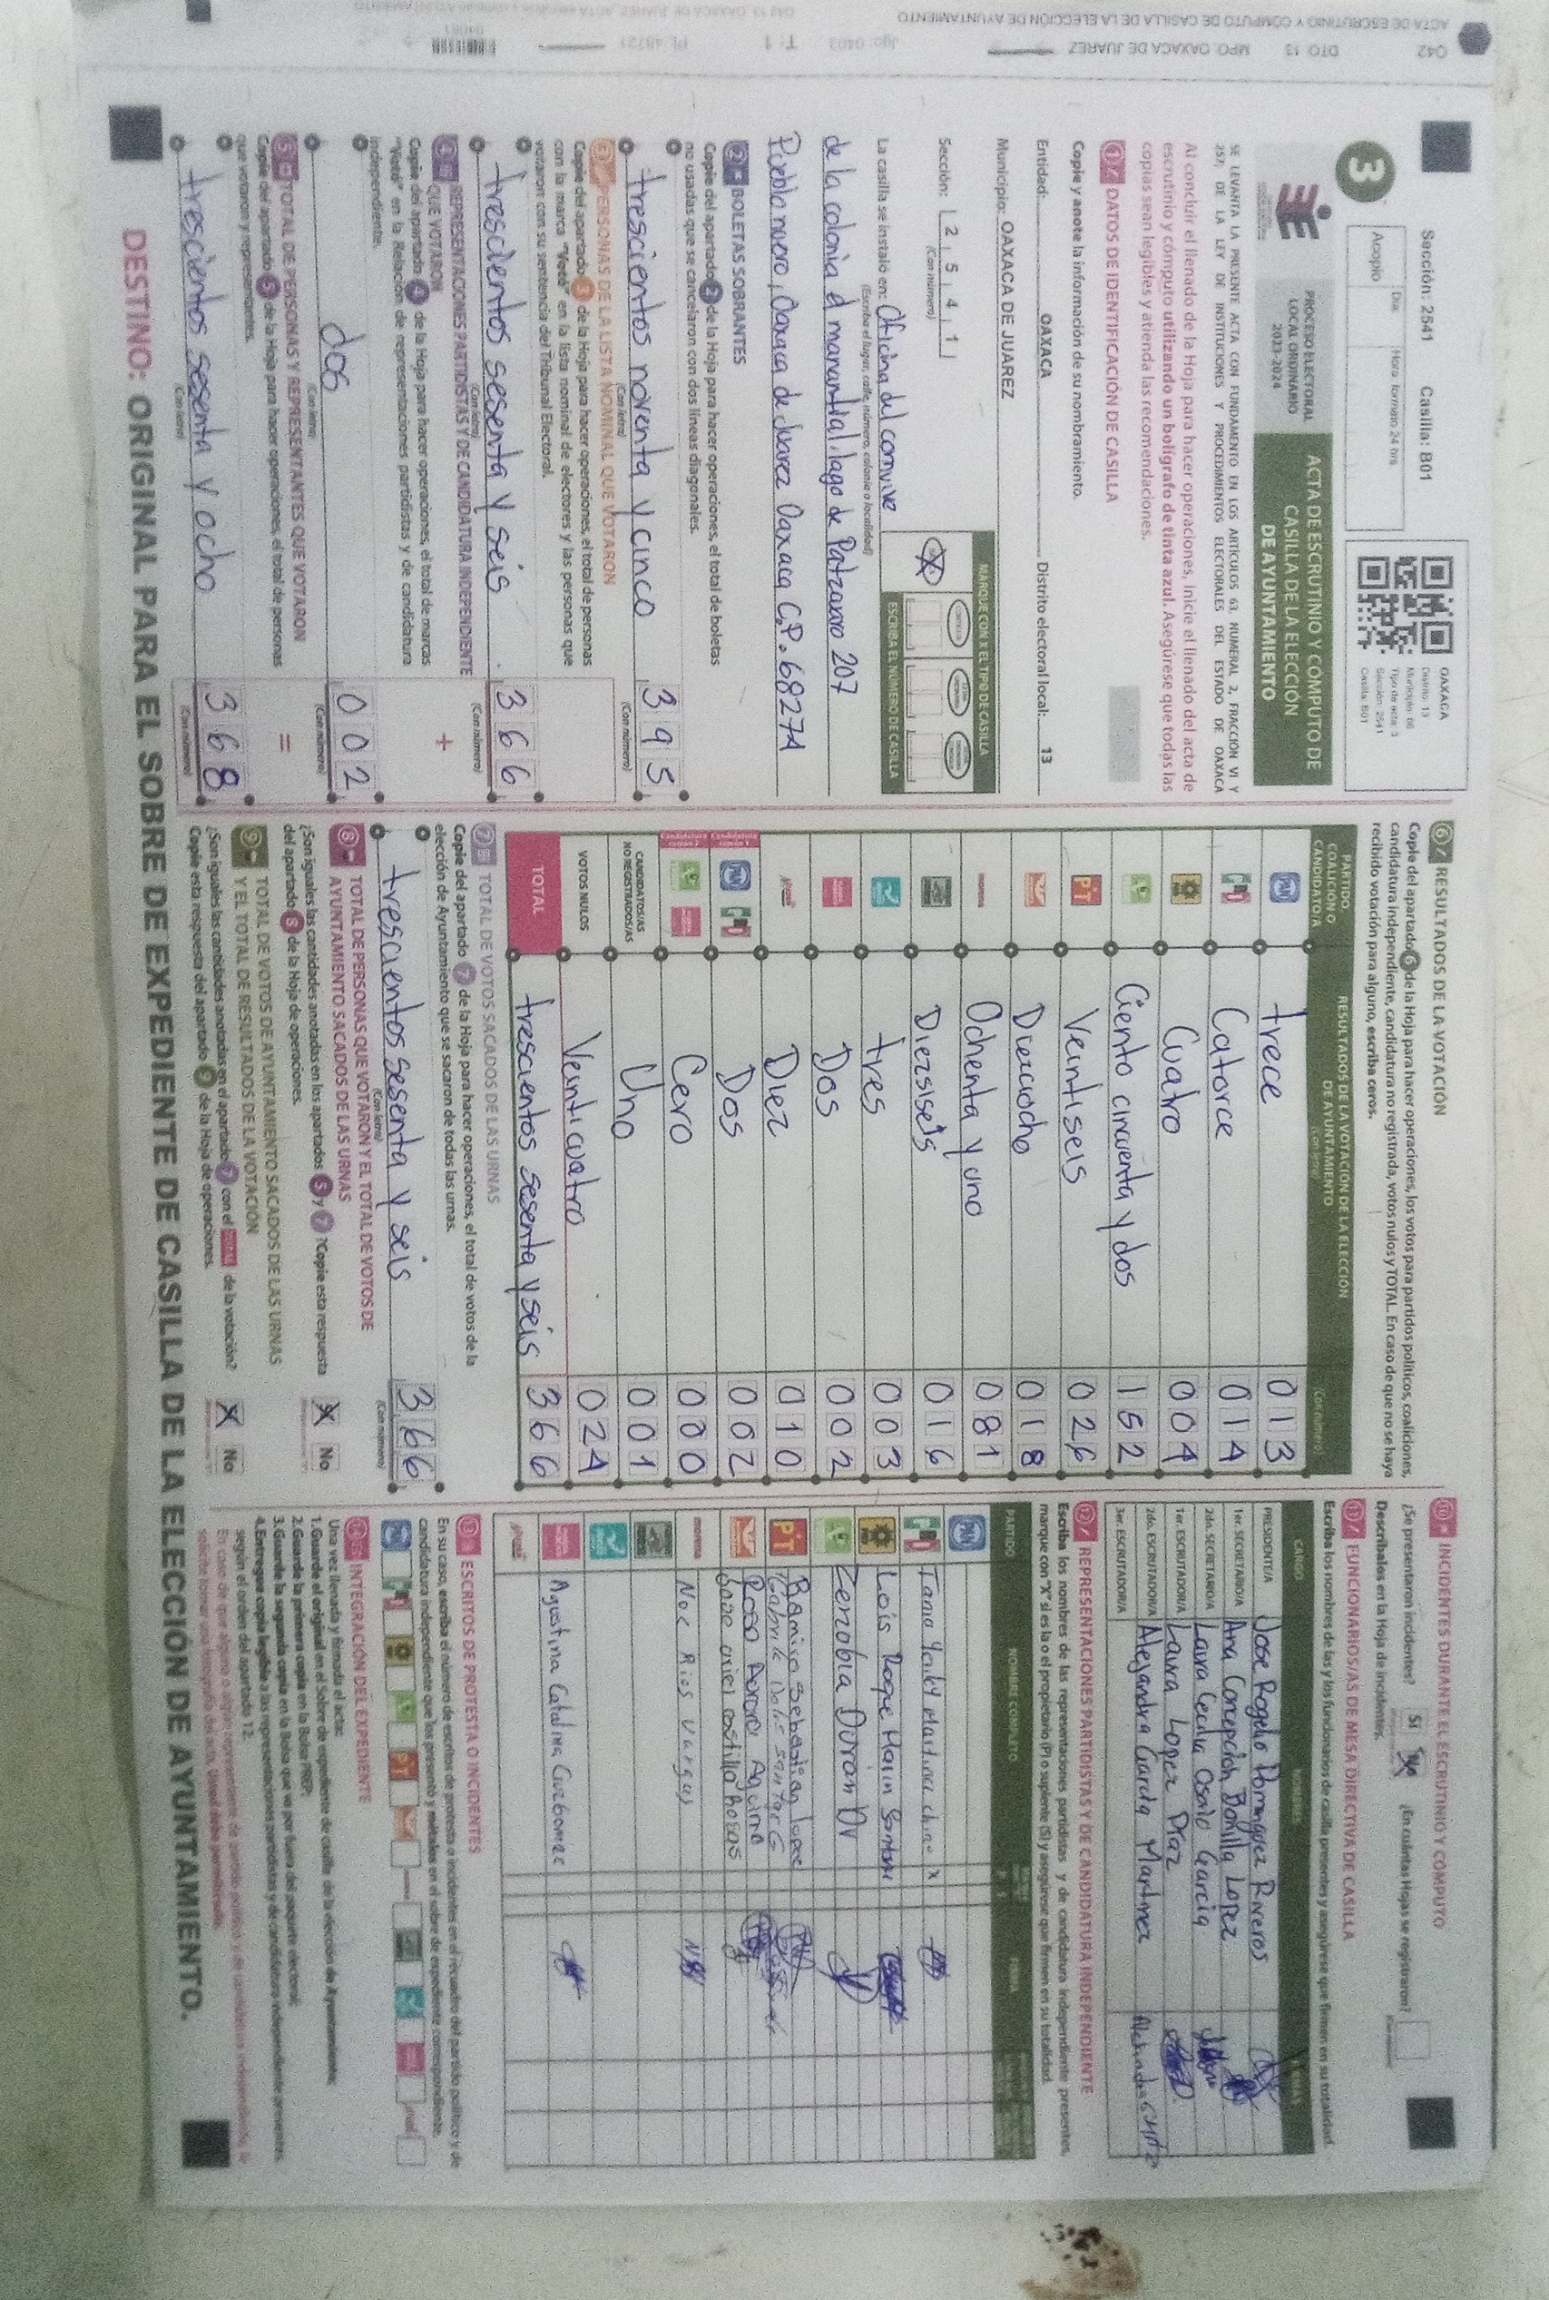 Sección: 2541 Casilla: B01
3
Día: Hora: formato 24 hrs
Acopio
OAXACA
Distrito: 13
Tipo de acta: 3
Sección: 2541
Casilla: B01
PROCESO ELECTORAL
LOCAL ORDINARIO
2023-2024
ACTA DE ESCRUTINIO Y CÓMPUTO DE
CASILLA DE LA ELECCIÓN
DE AYUNTAMIENTO
SE LEVANTA LA PRESENTE ACTA CON FUNDAMENTO EN LOS ARTÍCULOS 63, NUMERAL 2, FRACCIÓN VI Y
257, DE LA LEY DE INSTITUCIONES Y PROCEDIMIENTOS ELECTORALES DEL ESTADO DE OAXACA
Al concluir el llenado de la Hoja para hacer operaciones, inicie el llenado del acta de
escrutinio y cómputo utilizando un bolígrafo de tinta azul. Asegúrese que todas las
copias sean legibles y atienda las recomendaciones.
1 DATOS DE IDENTIFICACIÓN DE CASILLA
Copie y anote la información de su nombramiento.
Entidad: OAXACA Distrito electoral local: 13
Municipio: OAXACA DE JUAREZ
Sección: 2541
(Con número)
MARQUE CON X EL TIPO DE CASILLA
ESCRIBA EL NÚMERO DE CASILLA
La casilla se instaló en: Oficina del comvive
(Escriba el lugar, calle, número, colonia o localidad)
de la colonia el manantial, lago de Patzcuaro 207
Pueblo nuevo, Oaxaca de Juarez Oaxaca C.P. 68274
2 BOLETAS SOBRANTES
Copie del apartado 2 de la Hoja para hacer operaciones, el total de boletas
no usadas que se cancelaron con dos líneas diagonales.
trescientos noventa y cinco 395
(Con letra) (Con número)
3 PERSONAS DE LA LISTA NOMINAL QUE VOTARON
Copie del apartado 3 de la Hoja para hacer operaciones, el total de personas
con la marca "Votó" en la lista nominal de electores y las personas que
votaron con su sentencia del Tribunal Electoral.
trescientos sesenta y seis 366
(Con letra) (Con número)
4 REPRESENTACIONES PARTIDISTAS Y DE CANDIDATURA INDEPENDIENTE
QUE VOTARON
+
Copie del apartado 4 de la Hoja para hacer operaciones, el total de marcas
"Votó" en la Relación de representaciones partidistas y de candidatura
independiente.
dos 002
(Con letra) (Con número)
5 TOTAL DE PERSONAS Y REPRESENTANTES QUE VOTARON
=
Copie del apartado 5 de la Hoja para hacer operaciones, el total de personas
que votaron y representantes.
trescientos sesenta y ocho 368
(Con letra) (Con número)
6 RESULTADOS DE LA VOTACIÓN
Copie del apartado 6 de la Hoja para hacer operaciones, los votos para partidos políticos, coaliciones,
candidatura independiente, candidatura no registrada, votos nulos y TOTAL. En caso de que no se haya
recibido votación para alguno, escriba ceros.
PARTIDO,
COALICIÓN O
CANDIDATO/A
RESULTADOS DE LA VOTACIÓN DE LA ELECCIÓN
DE AYUNTAMIENTO
(Con letra) (Con número)
PAN trece 013
PRI Catorce 014
Cuatro 004
Ciento cincuenta y dos 152
PT Veintiseis 026
Dieciocho 018
morena Ochenta y uno 081
Diezsiseis 016
tres 003
Dos 002
Diez 010
PAN PRI Dos 002
Cero 000
CANDIDATOS/AS
NO REGISTRADOS/AS
Uno 001
VOTOS NULOS Veinticuatro 024
TOTAL trescientos sesenta y seis 366
7 TOTAL DE VOTOS SACADOS DE LAS URNAS
Copie del apartado 7 de la Hoja para hacer operaciones, el total de votos de la
elección de Ayuntamiento que se sacaron de todas las urnas.
trescientos sesenta y seis 366
(Con letra) (Con número)
8 TOTAL DE PERSONAS QUE VOTARON Y EL TOTAL DE VOTOS DE
AYUNTAMIENTO SACADOS DE LAS URNAS
¿Son iguales las cantidades anotadas en los apartados 5 y 7? Copie esta respuesta
del apartado 8 de la Hoja de operaciones.
No
9 TOTAL DE VOTOS DE AYUNTAMIENTO SACADOS DE LAS URNAS
Y EL TOTAL DE RESULTADOS DE LA VOTACIÓN
¿Son iguales las cantidades anotadas en el apartado 7 con el TOTAL de la votación?
Copie esta respuesta del apartado 9 de la Hoja de operaciones.
No
10 INCIDENTES DURANTE EL ESCRUTINIO Y CÓMPUTO
¿Se presentaron incidentes? Sí No ¿En cuántas Hojas se registraron?
Descríbalos en la Hoja de incidentes.
11 FUNCIONARIOS/AS DE MESA DIRECTIVA DE CASILLA
Escriba los nombres de las y los funcionarios de casilla presentes y asegúrese que firmen en su totalidad.
CARGO NOMBRES FIRMAS
PRESIDENTE/A Jose Rogelio Dominguez Riveros
1er. SECRETARIO/A Ana Concepción Bonilla Lopez
2do. SECRETARIO/A Laura Cecilia Osorio Garcia
1er. ESCRUTADOR/A Laura Lopez Diaz
2do. ESCRUTADOR/A Alejandra Garcia Martinez
3er. ESCRUTADOR/A
12 REPRESENTACIONES PARTIDISTAS Y DE CANDIDATURA INDEPENDIENTE
Escriba los nombres de las representaciones partidistas y de candidatura independiente presentes,
marque con "X" si es la o el propietario (P) o suplente (S) y asegúrese que firmen en su totalidad.
PARTIDO NOMBRE COMPLETO FIRMA
PAN
PRI Tania Yanley Martinez X
Lois Roque Marin Santos
Zenobia Duran
PT Ramiro Sebastian Lopez
Rosa Aurora Aquino
ariel castillo Rosas
morena Noe Rios Vargas
Agustina Catalina
13 ESCRITOS DE PROTESTA O INCIDENTES
En su caso, escriba el número de escritos de protesta o incidentes en el recuadro del partido político y de
candidatura independiente que los presentó y métalos en el sobre de expediente correspondiente.
14 INTEGRACIÓN DEL EXPEDIENTE
Una vez llenada y firmada el acta:
1. Guarde el original en el Sobre de expediente de casilla de la elección de Ayuntamiento;
2. Guarde la primera copia en la Bolsa PREP;
3. Guarde la segunda copia en la Bolsa que va por fuera del paquete electoral;
4. Entregue copia legible a las representaciones partidistas y de candidatura independiente presentes,
según el orden del apartado 12.
DESTINO: ORIGINAL PARA EL SOBRE DE EXPEDIENTE DE CASILLA DE LA ELECCIÓN DE AYUNTAMIENTO.
042 DTO 13 MPO. OAXACA DE JUAREZ
ACTA DE ESCRUTINIO Y CÓMPUTO DE CASILLA DE LA ELECCIÓN DE AYUNTAMIENTO